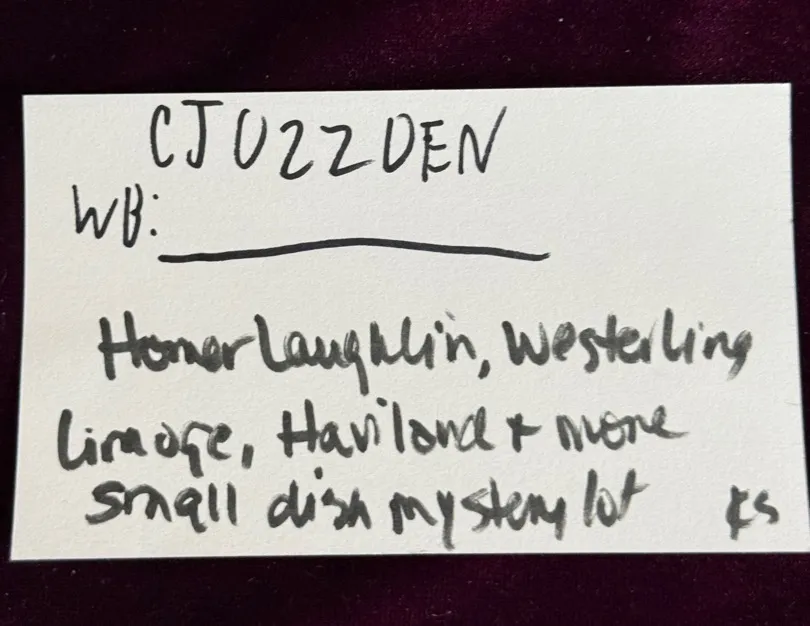 CJUZZDEN
WB:
Homer Laughlin, Westerling
Limoge, Haviland + more
small dish mystery lot KS